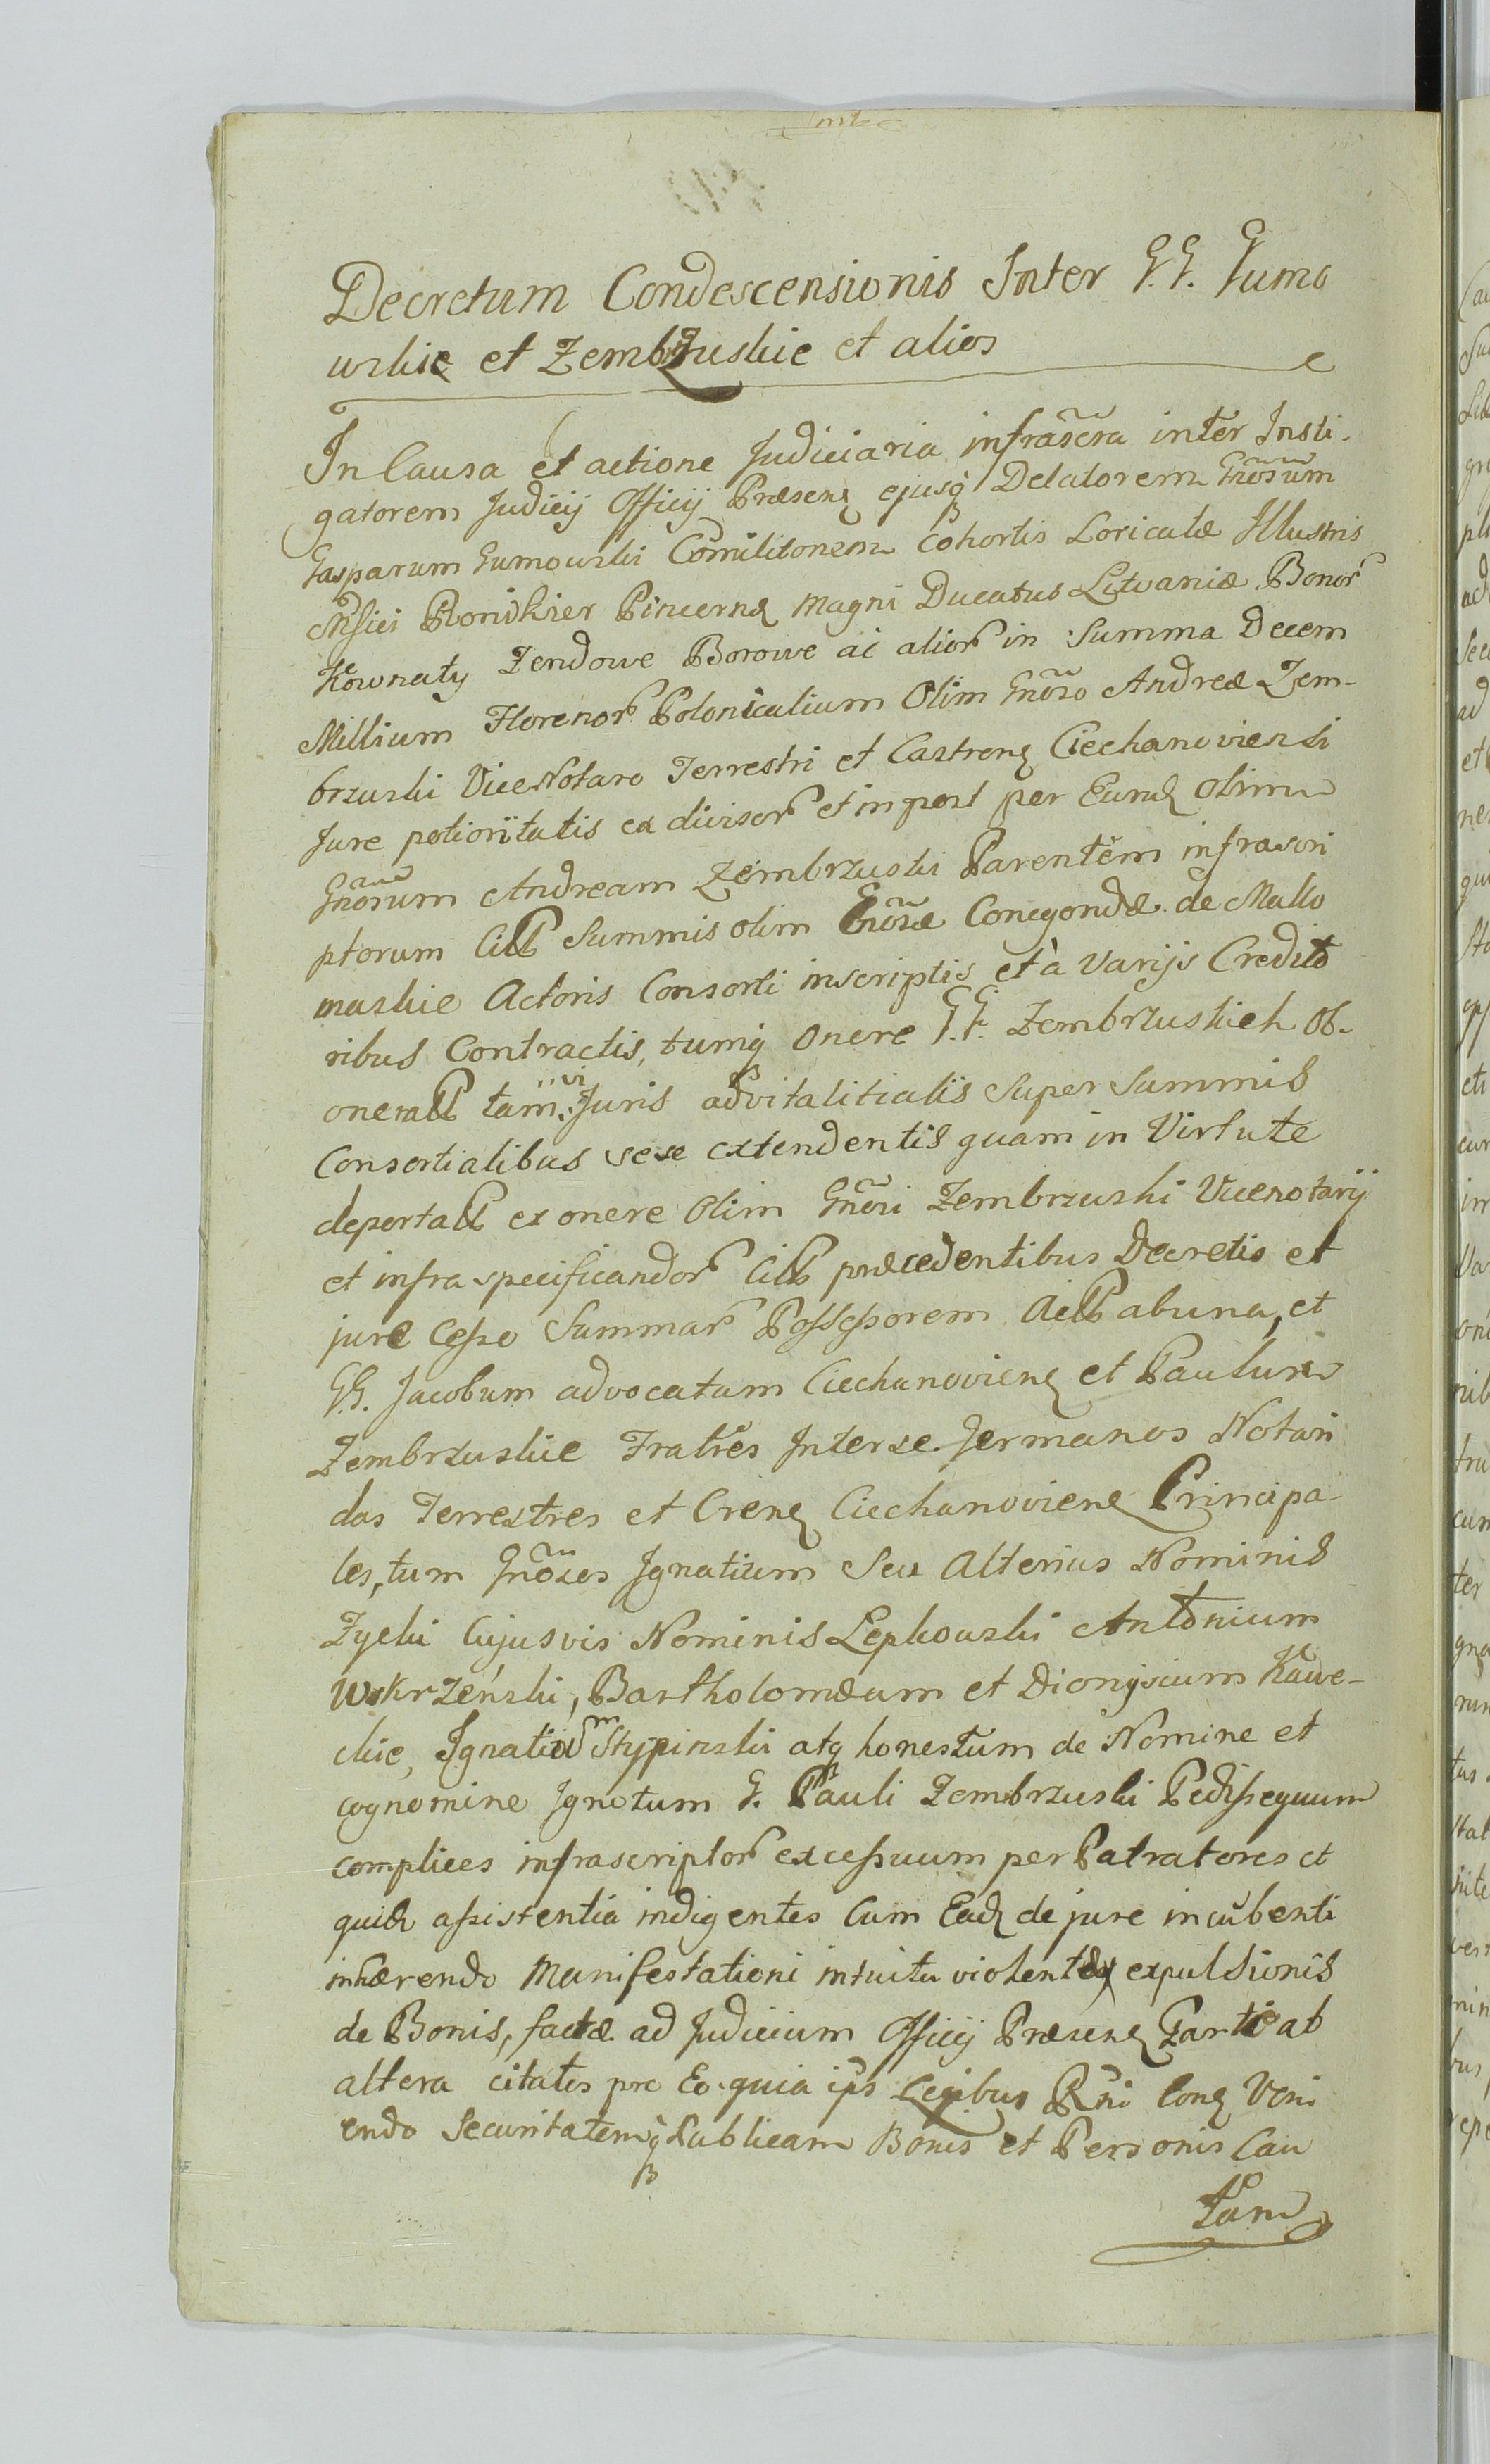 Decretum Condescensionis Inter G.G. Gumo
wskie et Zembrzuskie et alios
In Causa et actione Judiciaria infrascra inter Insti-
gatorem Judicij Officij Præsenę ejusq Delatorem Gnosum
Gasparum Gumowski Comilitonem Cohortis Loricatæ Illustris
Mfici Ronikier Pincernæ Magni Ducatus Litvaniæ Bonor
Kownaty Zendowe Borowe ac alior in Summa Decem
Millium Florenor Polonicalium Olim Gnoso Andreæ Zem-
brzuski ViceNotaro Terrestri et Castrenę Ciechanoviensi
Jure potioritatis ex divisor et in post per Eund olim
Gnosum Andream Zembrzuski Parentem infrascri
ptorum Citt Summis olim Gnosæ Conegondæ de Mallo
waskie Actoris Consorti inscriptis et à Varijs Credito
ribus Contractis, tumq Onere G.G. Zembrzuskich Ob-
oneratt tam vi Juris advitalitialis Super Summis
Consortialibus sese extendentis quam in Virtute
deportatt ex onere Olim Gnosi Zembrzuski Vicenotarij
et infra specificandor Citt præcedentibus Decretis et
jure Cesso Summar Possessorem Actt ab una, et
G.G. Jacobum advocatum Ciechanovienę et Paulum
Zembrzuskie Fratres Interse Germanos Notari
das Terrestres et Crenę Ciechanovienę Principa-
les, tum Gnosos Ignatium Seu Alterius Nominis
Zycki Cujusvis Nominis Lepkowski Antonium
Wokrzeński, Bartholomæum et Dionysium Kawe-
ckie, Ignatium Stypinski atq honestum de Nomine et
cognomine Ignotum G. Pauli Zembrzuski Pedissequum
complices infrascriptor excessuum per Patratores et
quid assistentia indigentes Cum Ead de jure incubenti
inhærendo Manifestationi intuitu violentæ expulsionis
de Bonis, factæ ad Judicium Officij Præsenę Parte ab
altera citatos pro Eo quia ips Legibus Rni Conę Veni
endo Securitatemq Publicam Bonis et Personis Cau
tam